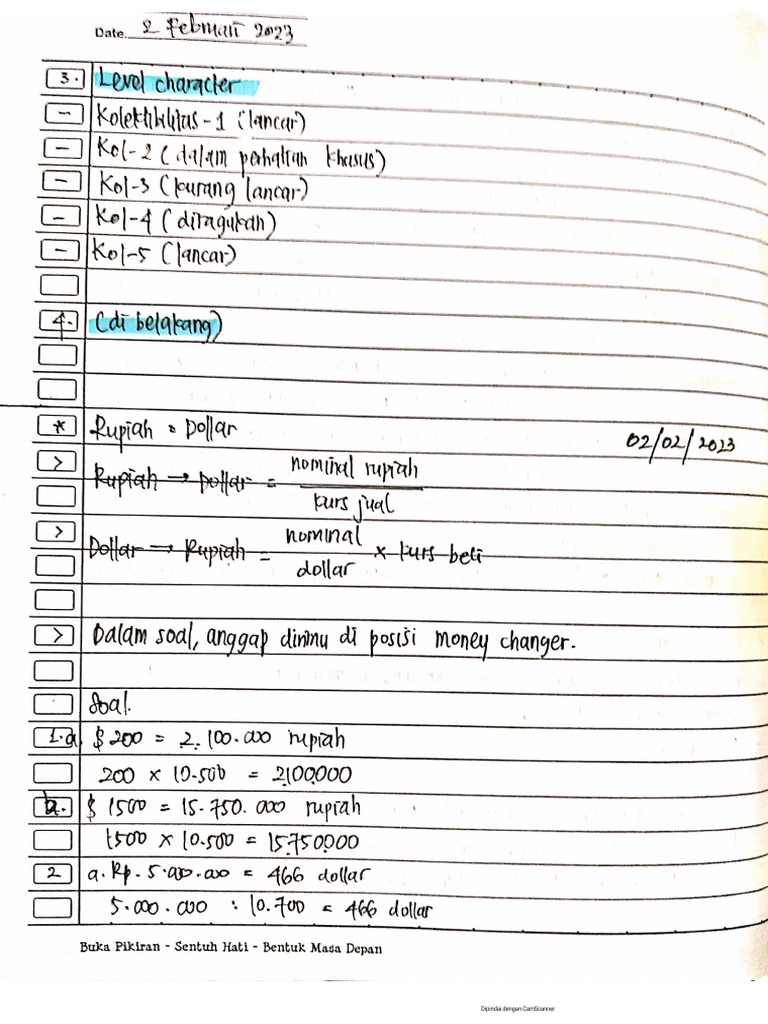 Date. 2 Februari 2023
3. Level character
- Kolektibilitas-1 (lancar)
- Kol-2 (dalam perhatian khusus)
- Kol-3 (kurang lancar)
- Kol-4 (diragukan)
- Kol-5 (lancar)
4. (di belakang)
* Rupiah = Dollar
02/02/2023
> Rupiah → Dollar = nominal rupiah / kurs jual
> Dollar → Rupiah = nominal / dollar × kurs beli
> Dalam soal, anggap dirimu di posisi money changer.
Soal.
1.a. $ 200 = 2.100.000 rupiah
200 × 10.500 = 2.100.000
b. $ 1500 = 15.750.000 rupiah
1500 × 10.500 = 15.750.000
2 a. Rp. 5.000.000 = 466 dollar
5.000.000 : 10.700 = 466 dollar
Buka Pikiran - Sentuh Hati - Bentuk Masa Depan
Dipindai dengan CamScanner